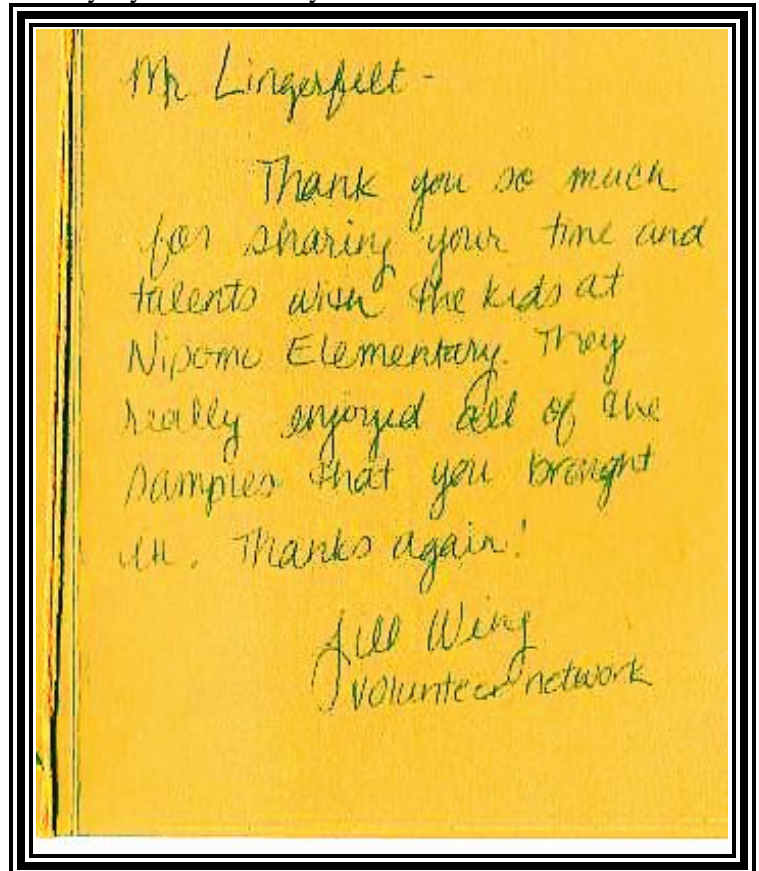 Mr Lingerfelt -
Thank you so much
for sharing your time and
talents with the kids at
Nipomo Elementary. They
really enjoyed all of the
samples that you brought
in. Thanks again!
Jill Wing
Volunteer network